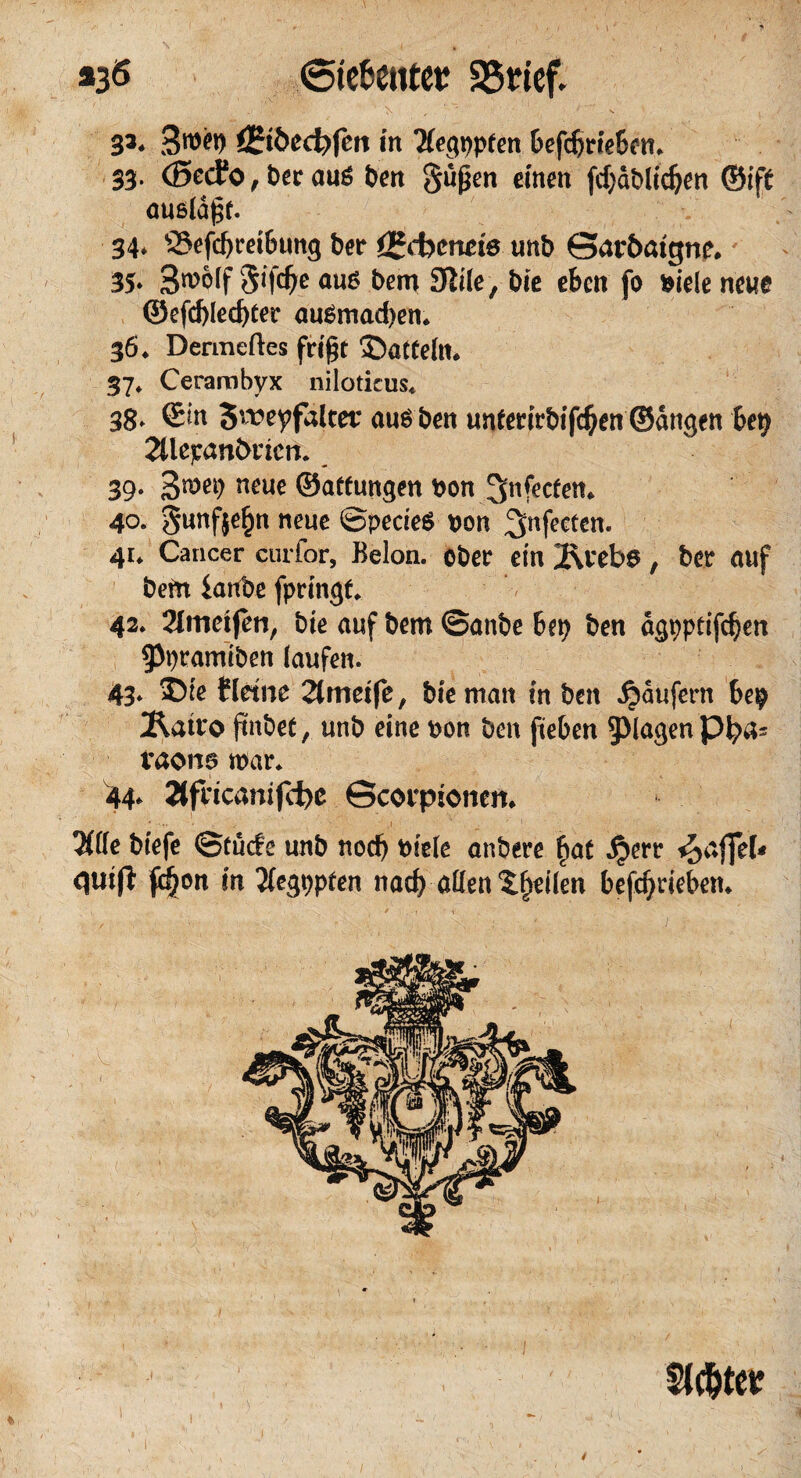 236 Siebenter Brief.
32. Zwey Eidechsen in Aegypten beschrieben.
33. Gecko, der aus den Füßen einen schädlichen Gift
ausläßt.
34. Beschreibung der Echeneis und Sardaigne.
35. Zwölf Fische aus dem Nile, die eben so viele neue
Geschlechter ausmachen.
36. Dermestes frißt Datteln.
37. Cerambyx niloticus.
38. Ein Zweyfalter aus den unterirdischen Gängen bey
Alexandrien.
39. Zwey neue Gattungen von Insecten.
40. Funfzehn neue Species von Insecten.
41. Cancer cursor, Belon. oder ein Krebs, der auf
dem Lande springt.
42. Ameisen, die auf dem Sande bey den ägyptischen
Pyramiden laufen.
43. Die kleine Ameise, die man in den Häusern bey
Kairo findet, und eine von den sieben Plagen Pha-
raons war.
44. Africanische Scorpionen.
Alle diese Stücke und noch viele andere hat Herr Hassel-
quist schon in Aegypten nach allen Theilen beschrieben.
Achter